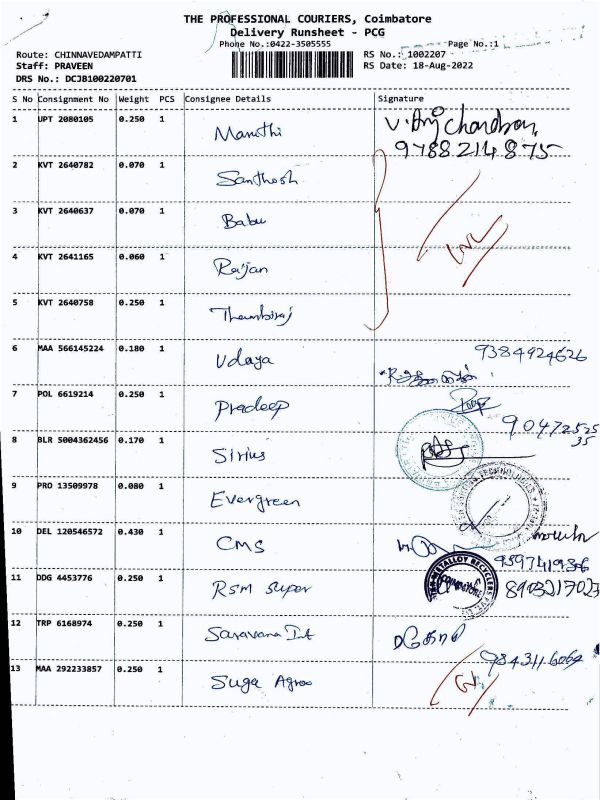 THE PROFESSIONAL COURIERS, Coimbatore
Delivery Runsheet - PCG
Phone No.:0422-3505555 Page No.:1
Route: CHINNAVEDAMPATTI RS No.: 1002207
Staff: PRAVEEN RS Date: 18-Aug-2022
DRS No.: DCJB100220701
S No Consignment No Weight PCS Consignee Details Signature
1 UPT 2080105 0.250 1 Maruthi
9788214875
2 KVT 2640782 0.070 1 Santhosh
3 KVT 2640637 0.070 1 Babu
4 KVT 2641165 0.060 1 Rajan
5 KVT 2640758 0.250 1 Thambiraj
6 MAA 566145224 0.180 1 Udaya 9384924626
7 POL 6619214 0.250 1 Pradeep
8 BLR 5004362456 0.170 1 Sirius
9 PRO 13509978 0.080 1 Evergreen
10 DEL 120546572 0.430 1 CMS
11 DDG 4453776 0.250 1 RSM Super 8903217023
12 TRP 6168974 0.250 1 Saravana
13 MAA 292233857 0.250 1 Suga Agroo